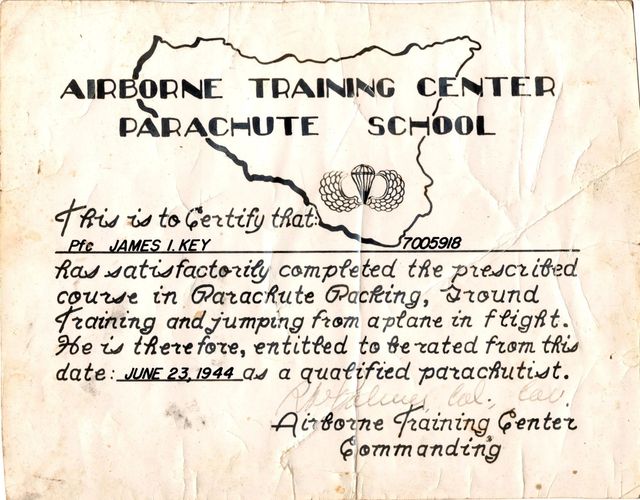 AIRBORNE TRAINING CENTER
PARACHUTE SCHOOL
This is to Certify that:
Pfc JAMES I. KEY 7005918
has satisfactorily completed the prescribed
course in Parachute Packing, Ground
Training and jumping from a plane in flight.
He is therefore, entitled to be rated from this
date: JUNE 23, 1944 as a qualified parachutist.
Col., Cav.
Airborne Training Center
Commanding